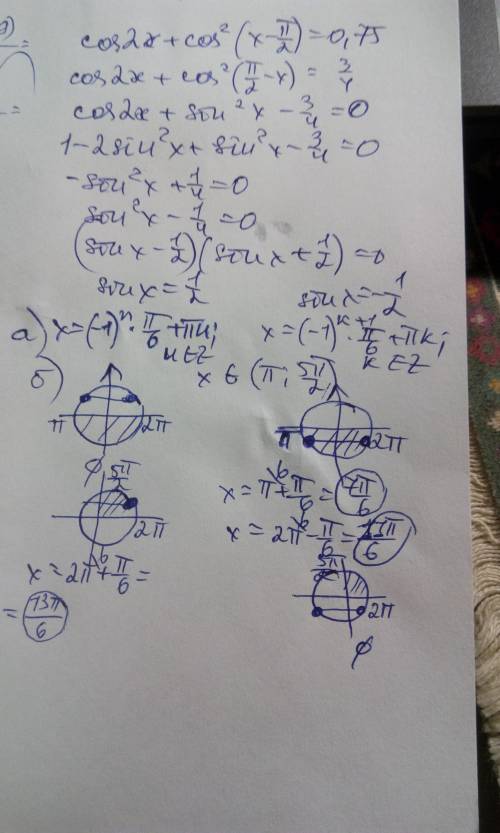 cos2x + cos²(x - π/2) = 0,75
cos2x + cos²(π/2 - x) = 3/4
cos2x + sin²x - 3/4 = 0
1 - 2sin²x + sin²x - 3/4 = 0
-sin²x + 1/4 = 0
sin²x - 1/4 = 0
(sinx - 1/2)(sinx + 1/2) = 0
sinx = 1/2
sinx = -1/2
а) x = (-1)ᵏ · π/6 + πk;
k ∈ Z
x = (-1)ᵏ⁺¹ · π/6 + πk;
k ∈ Z
б) x ∈ (π; 5π/2)
π 2π
∅
π 2π
5π/2
2π
x = 2π + π/6 =
= 13π/6
x = π + π/6 = 7π/6
x = 2π - π/6 = 11π/6
5π/2
2π
∅